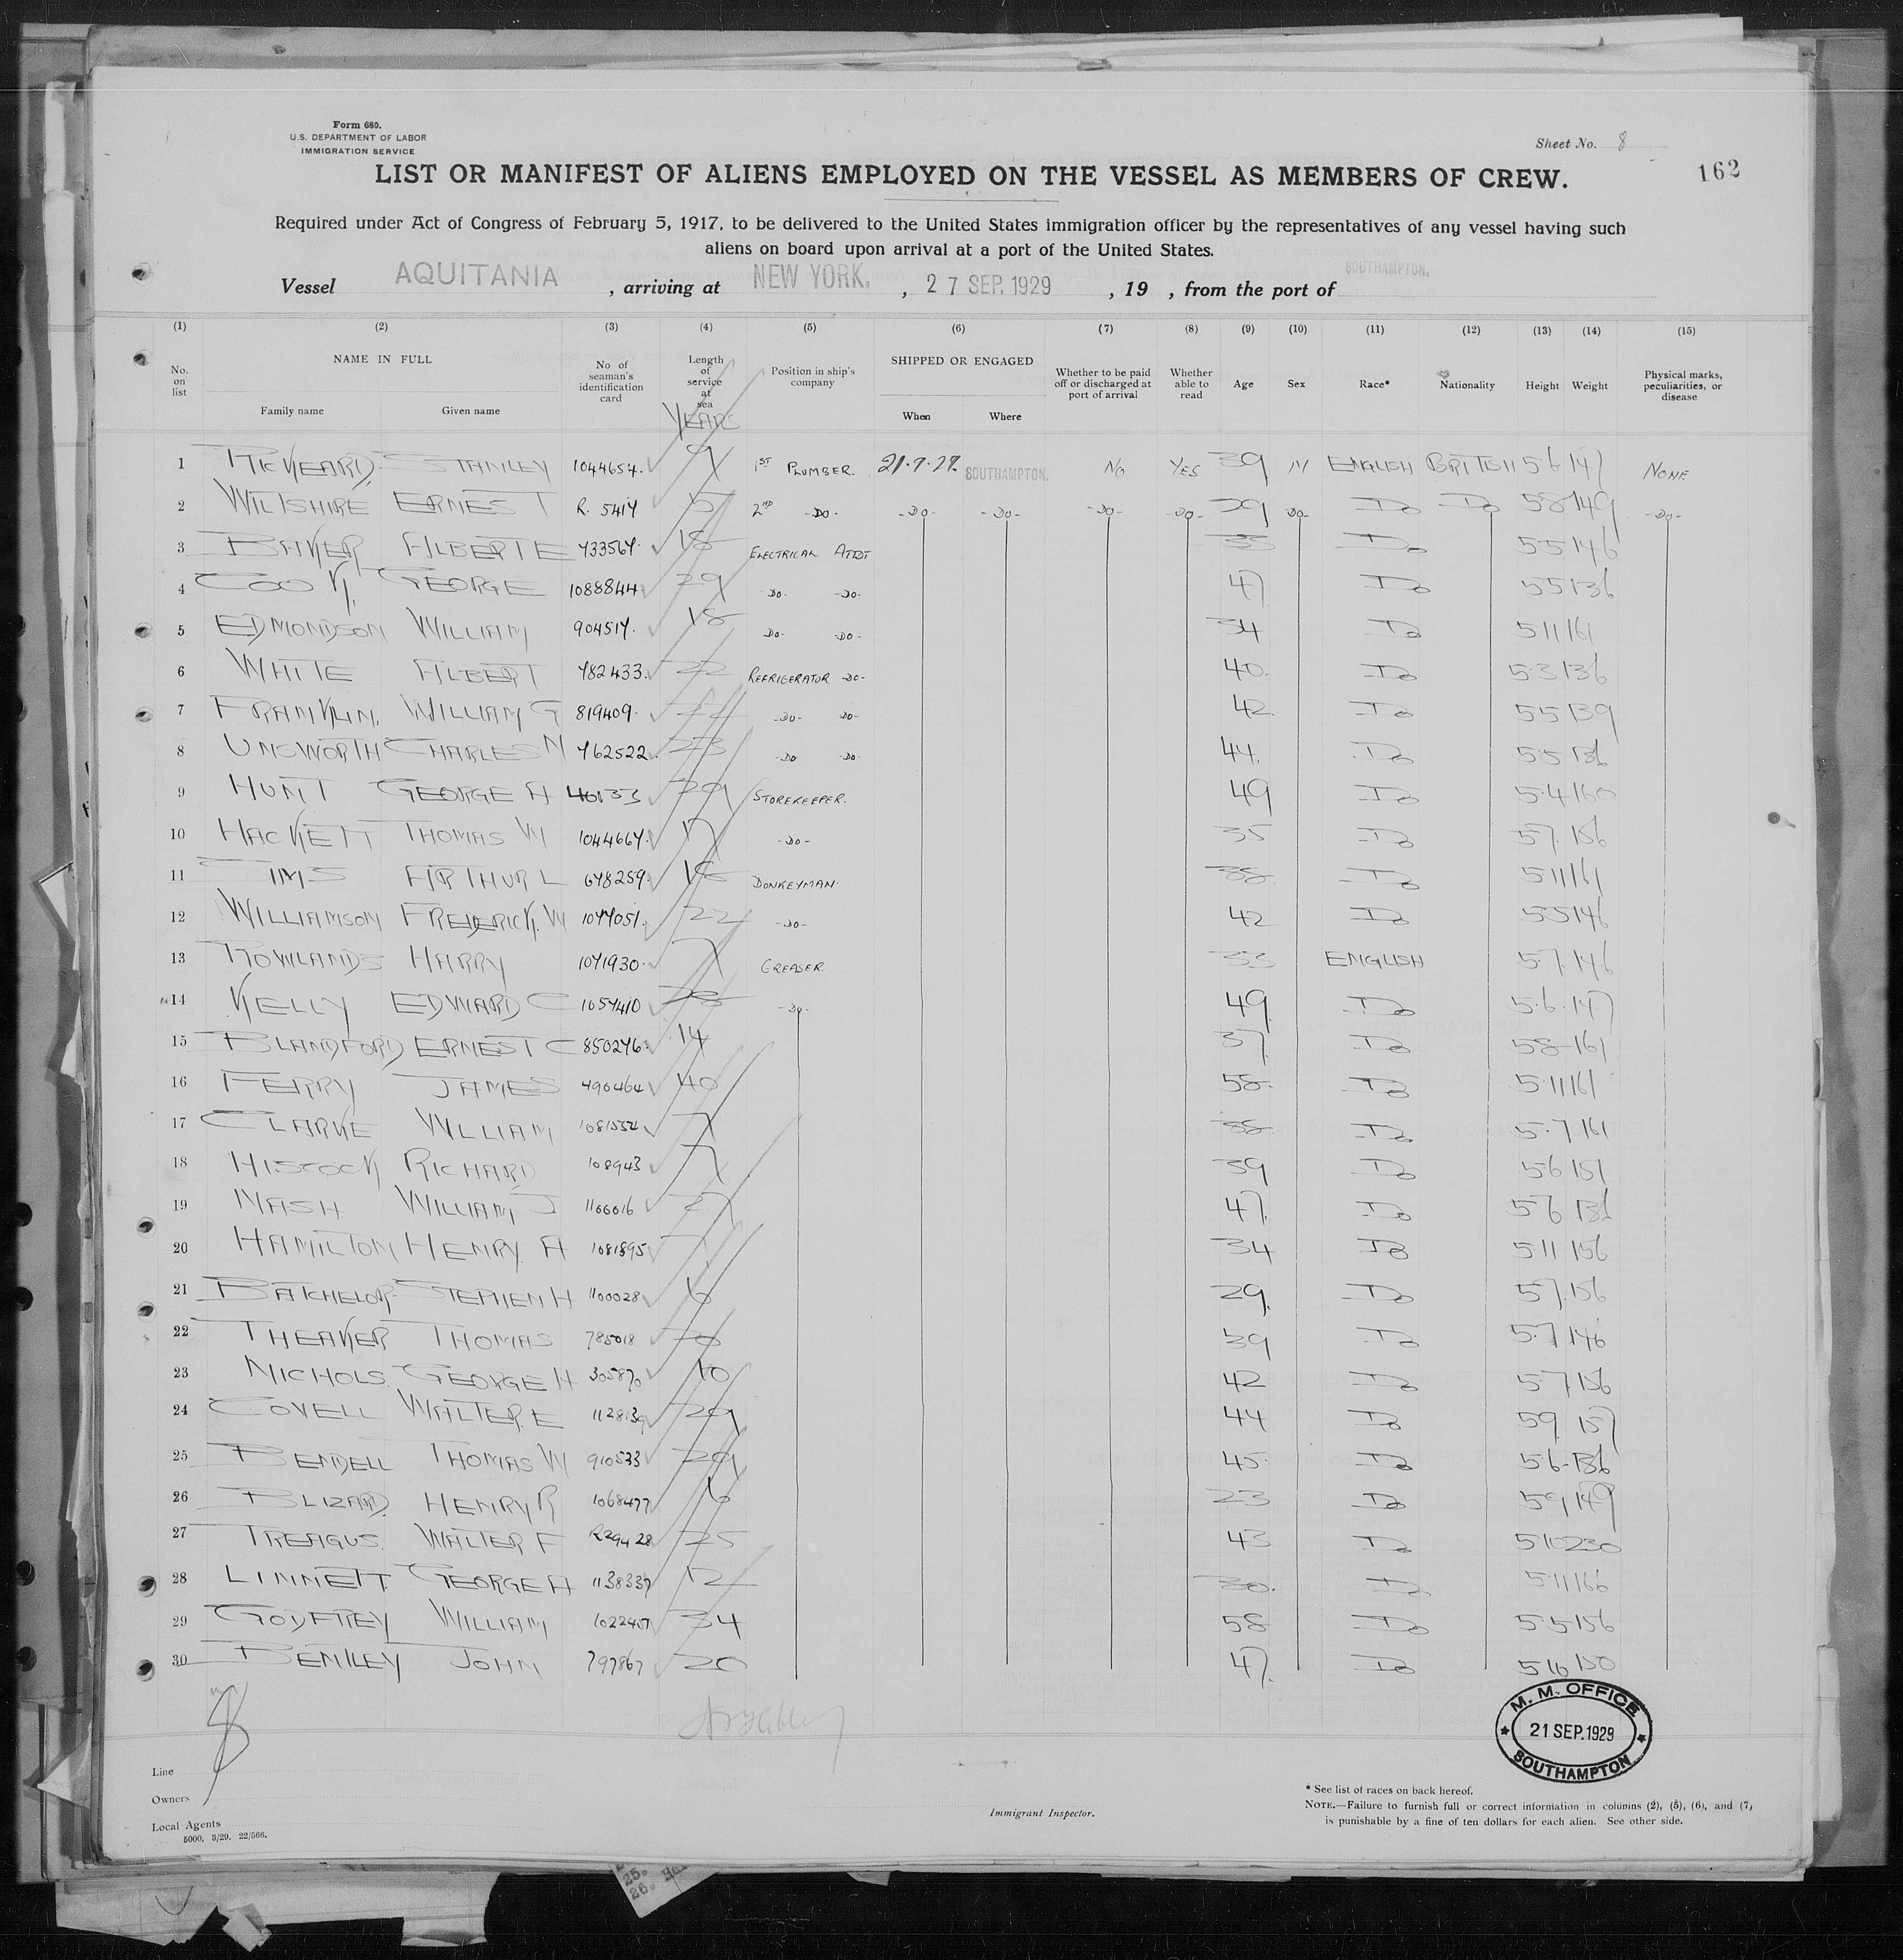 Form 680.
U.S. DEPARTMENT OF LABOR
IMMIGRATION SERVICE
Sheet No. 8
162
LIST OR MANIFEST OF ALIENS EMPLOYED ON THE VESSEL AS MEMBERS OF CREW.
Required under Act of Congress of February 5, 1917, to be delivered to the United States immigration officer by the representatives of any vessel having such
aliens on board upon arrival at a port of the United States.
Vessel AQUITANIA , arriving at NEW YORK. , 27 SEP. 1929 , 19 , from the port of SOUTHAMPTON.
(1) (2) (3) (4) (5) (6) (7) (8) (9) (10) (11) (12) (13) (14) (15)
No. on list NAME IN FULL Family name Given name No of seaman's identification card Length of service at sea YEARS Position in ship's company SHIPPED OR ENGAGED When Where Whether to be paid off or discharged at port of arrival Whether able to read Age Sex Race* Nationality Height Weight Physical marks, peculiarities, or disease
1 STANLEY 1044654. 9 1ST PLUMBER. SOUTHAMPTON. NO YES 39 M ENGLISH BRITISH 5 6 147 NONE
2 WILTSHIRE ERNEST R. 5417 2ND -DO- -DO- -DO- -DO- -DO- DO- DO DO 5 8 149 -DO-
3 BAKER ALBERT E 733567. 18 ELECTRICAL ATTDT DO 5 5 146
4 COOK GEORGE 1088844 29 DO- -DO- 47 DO 5 5 136
5 EDMONDSON WILLIAM 904517. 18 DO- -DO- 34 DO 5 11 161
6 WHITE ALBERT 782433. 22 REFRIGERATOR -DO- 40. DO 5.3 136
7 FRANKLIN. WILLIAM G 819409. -DO- DO- 42 DO 5 5 139
8 UNSWORTH CHARLES N 762522. 23 -DO DO- 44. DO 5.5 136
9 HUNT GEORGE A 46133 29 STOREKEEPER. 49 DO 5.4 160
10 HACKETT THOMAS W 1044667. 17 -DO- 35 DO 5 7. 156
11 ARTHUR L 678259. 18 DONKEYMAN. 38 DO 5 11 161
12 WILLIAMSON FREDERICK. W 1077051. 22 -DO- 42 DO 5 5 146
13 ROWLANDS HARRY 1071930. 7 GREASER. 33 ENGLISH 5.7. 146
14 KELLY EDWARD C 1057410 -DO- 49. DO 5.6. 147
15 BLANDFORD ERNEST C 850276. 14 37 DO 5 8 161
16 FERRY JAMES 790464 40 58. DO 5.11 161
17 CLARKE WILLIAM 7 38 DO 5.7 161
18 HISCOCK RICHARD 108943 7 39 DO 5 6 151
19 NASH WILLIAM J 1100016 27 47. DO 5 6 136
20 HAMILTON HENRY. A 1081895 7 34 DO 5 11 156
21 BATCHELOR STEPHEN H 1100028 6 29. DO 5 7. 156
22 THEAKER THOMAS 785018 39 DO 5.7 146
23 NICHOLS. GEORGE H 305870 10 42 DO 5 7 156
24 COVELL WALTER. E 112813 29 44 DO 5 9 157
25 BENDELL THOMAS W 910533 29 45. DO 5.6 136
26 BLIZARD. HENRY R 1068477 6 23 DO 5 9 149
27 TREAGUS. WALTER F R29428 25 43 DO 5 10 230
28 LINNETT. GEORGE A 1138337 12 30. DO 5 11 166
29 GODFREY WILLIAM 1022407 34 58 DO 5.5 156
30 JOHN 797867 20 47. DO 5 10 150
8
M. M. OFFICE
21 SEP. 1929
SOUTHAMPTON
Line
Owners
Local Agents
5000. 3/29. 22/566.
Immigrant Inspector.
* See list of races on back hereof.
NOTE.—Failure to furnish full or correct information in columns (2), (5), (6), and (7),
is punishable by a fine of ten dollars for each alien. See other side.
25.
26.